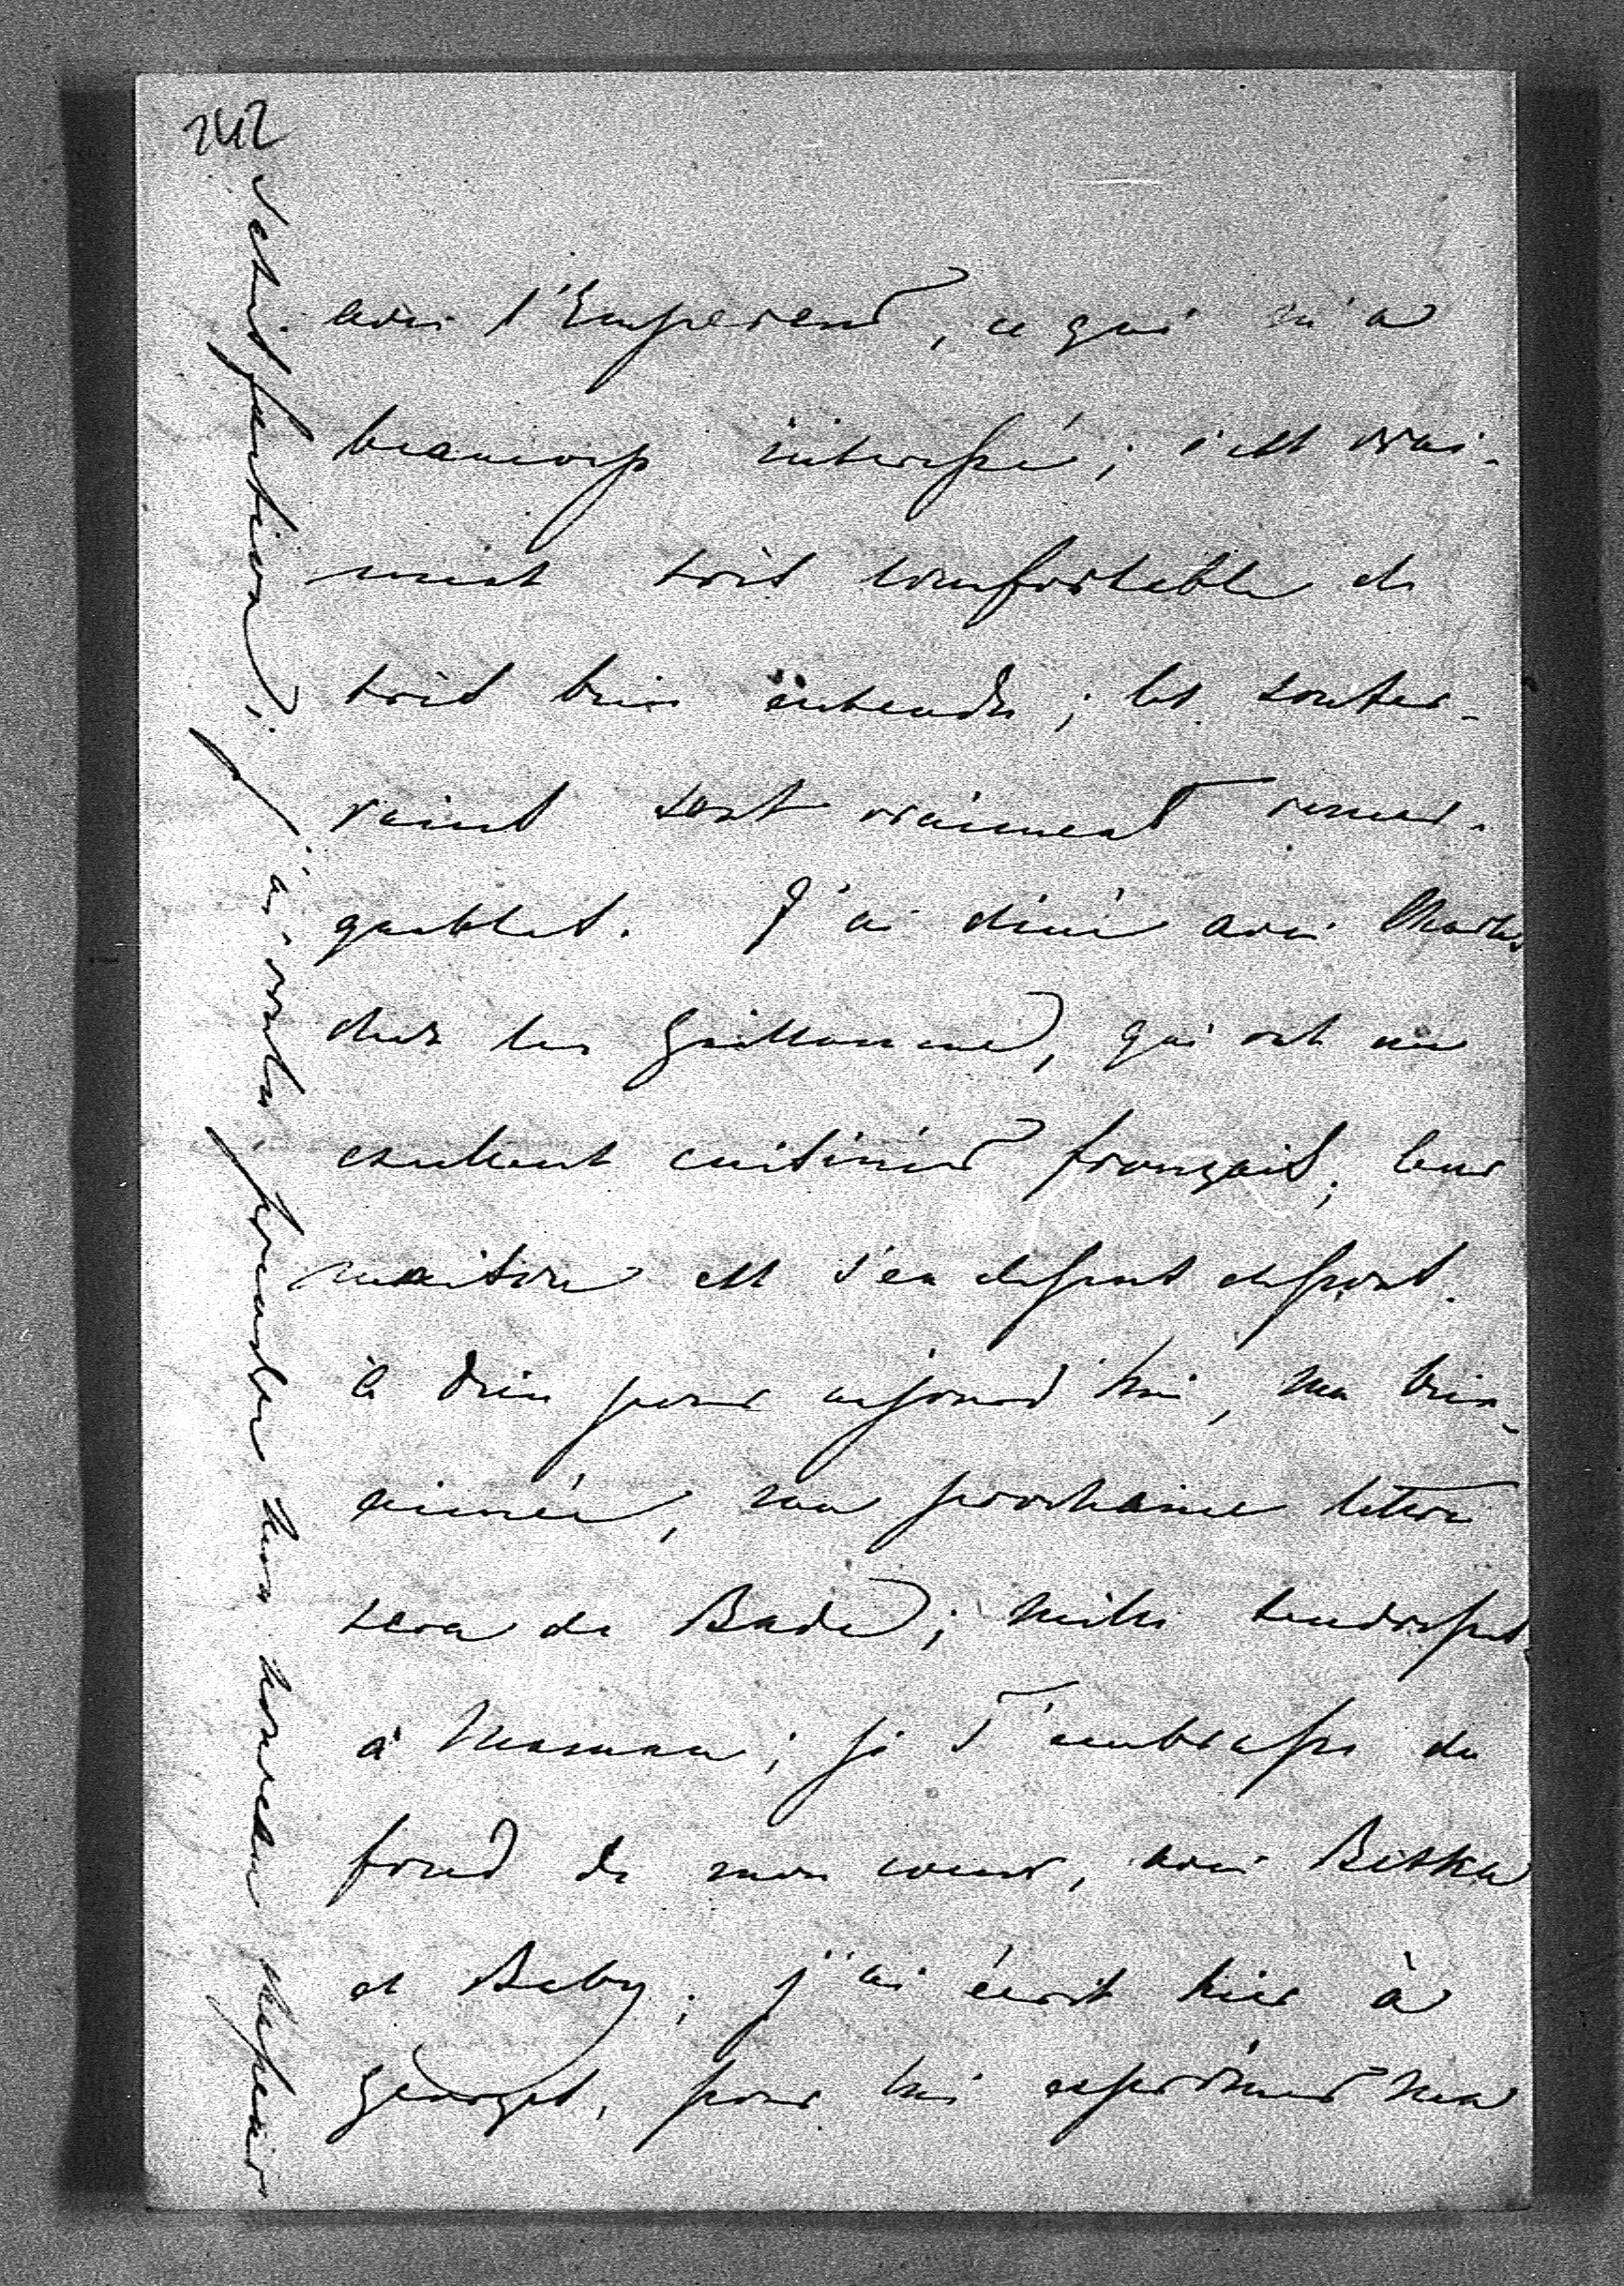 242
avec l'Empereur, ce qui m'a
beaucoup intéressé; c'est vrai-
ment très comfortable et
très bien entendu; les souter-
rains sont vraiment remar-
quables. J'ai diné avec Charles
chez les Guillaume, qui ont un
excellent cuisinier français; leur
maison est s'en dessus dessous.
à Dieu pour aujourd'hui, ma bien-
aimée, ma prochaine lettre
sera de Bade; mille tendresses
à Maman; je T'embrasse du
fond de mon coeur, avec Betska
et Baby; j'ai écrit hier à
Georges, pour lui exprimer ma
satisfaction; j'ai voulu prendre mon nouveau papier